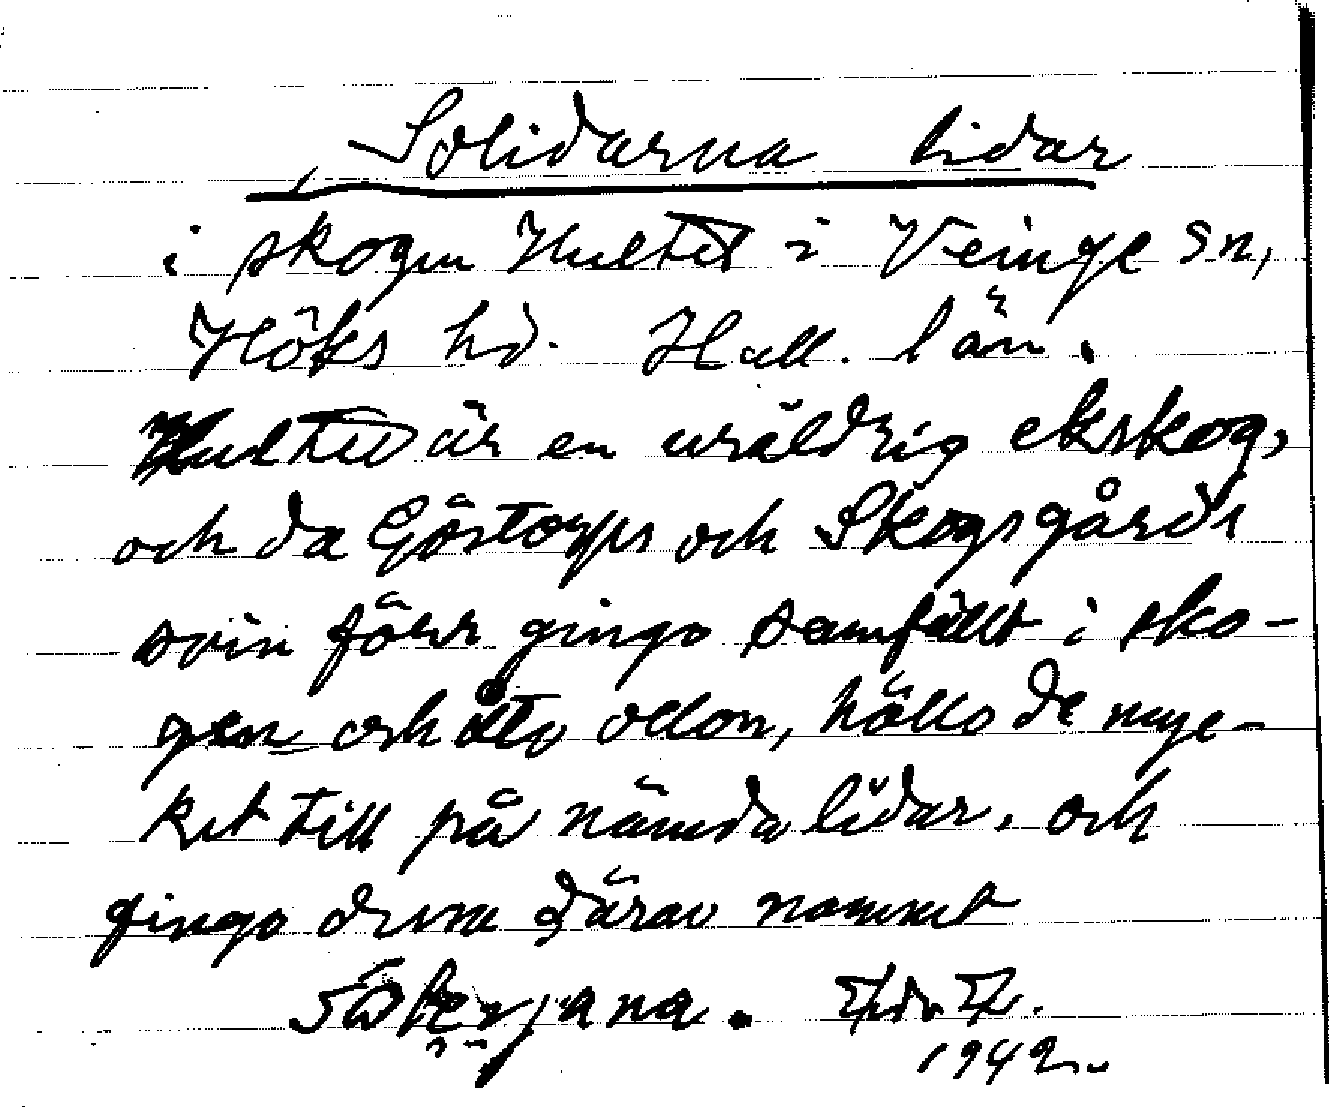 Solidarna lidar
i skogen Hultet i Veinge sn,
Höks hd. Hall. län.
Hultet är en uråldrig ekskog,
och da Göstorps och Skogsgårds
svin förr gingo samfällt i sko-
gen och åto ollon, höllo de myc-
ket till på nämda lidar. och
fingo dessa därav namnet
1942.